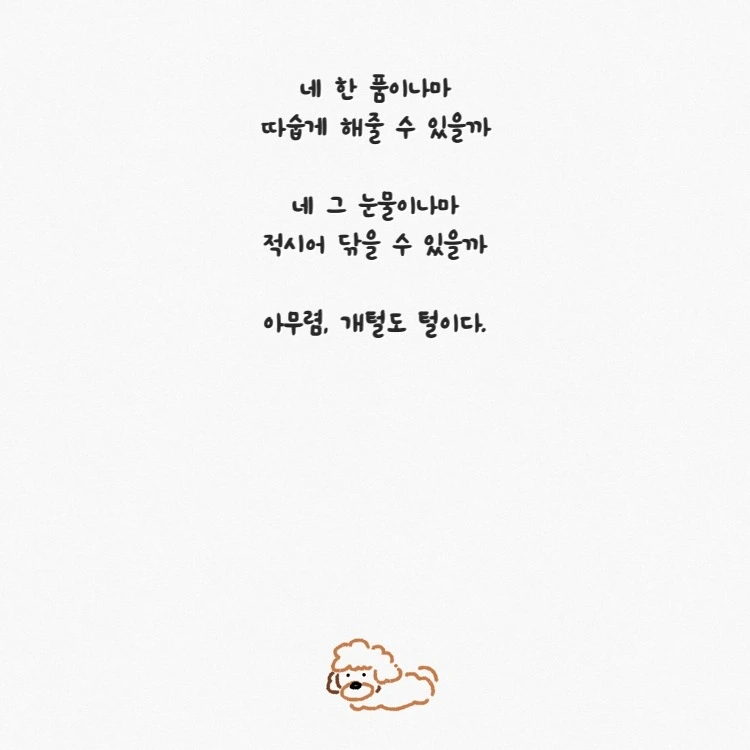 네 한 품이나마
따숩게 해줄 수 있을까
네 그 눈물이나마
적시어 닦을 수 있을까
아무렴, 개털도 털이다.